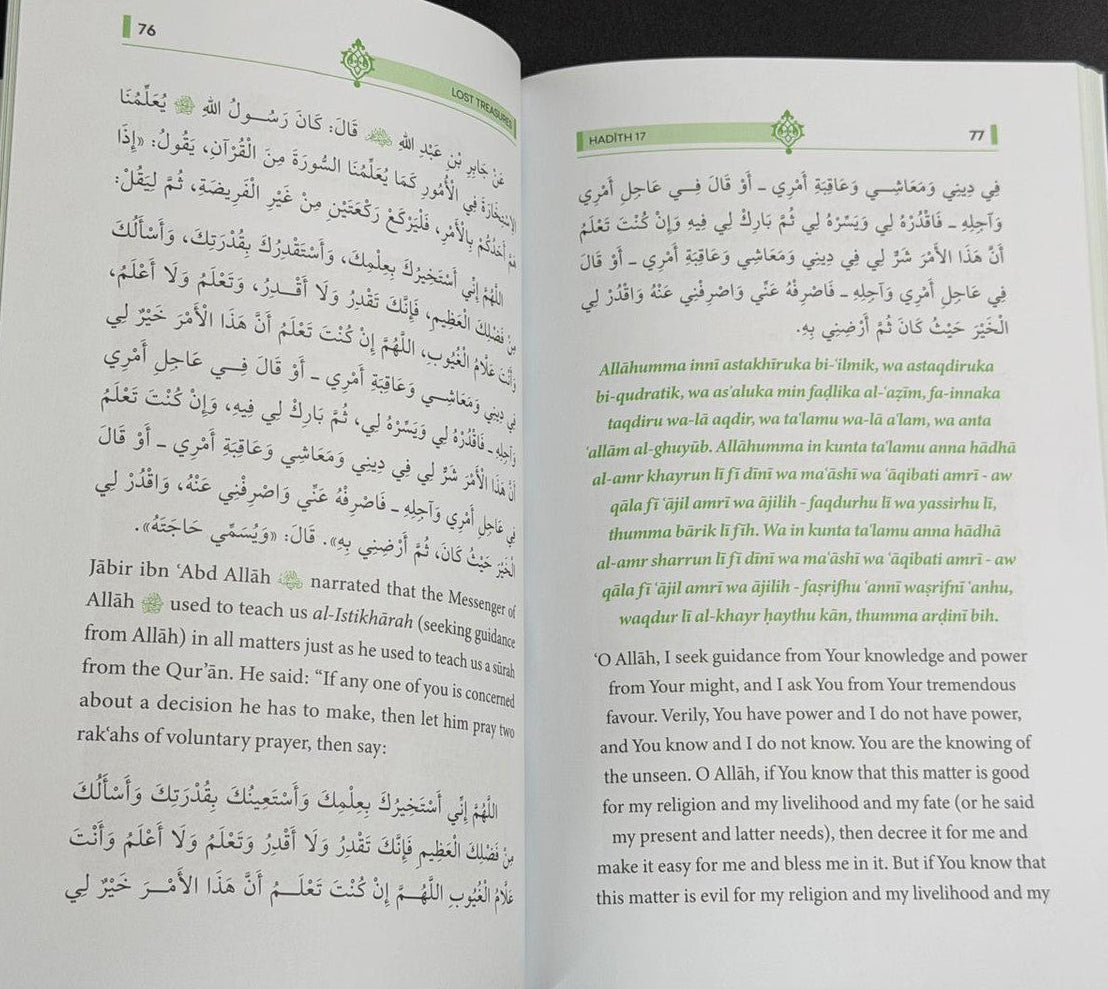 76
LOST TREASURES
عَنْ جَابِرِ بْنِ عَبْدِ اللهِ ﷺ قَالَ: كَانَ رَسُولُ اللهِ ﷺ يُعَلِّمُنَا
الِاسْتِخَارَةَ فِي الْأُمُورِ كَمَا يُعَلِّمُنَا السُّورَةَ مِنَ الْقُرْآنِ، يَقُولُ: «إِذَا
هَمَّ أَحَدُكُمْ بِالْأَمْرِ، فَلْيَرْكَعْ رَكْعَتَيْنِ مِنْ غَيْرِ الْفَرِيضَةِ، ثُمَّ لِيَقُلْ:
اللَّهُمَّ إِنِّي أَسْتَخِيرُكَ بِعِلْمِكَ، وَأَسْتَقْدِرُكَ بِقُدْرَتِكَ، وَأَسْأَلُكَ
مِنْ فَضْلِكَ الْعَظِيمِ، فَإِنَّكَ تَقْدِرُ وَلَا أَقْدِرُ، وَتَعْلَمُ وَلَا أَعْلَمُ،
وَأَنْتَ عَلَّامُ الْغُيُوبِ، اللَّهُمَّ إِنْ كُنْتَ تَعْلَمُ أَنَّ هَذَا الْأَمْرَ خَيْرٌ لِي
فِي دِينِي وَمَعَاشِي وَعَاقِبَةِ أَمْرِي – أَوْ قَالَ فِي عَاجِلِ أَمْرِي
وَآجِلِهِ – فَاقْدُرْهُ لِي وَيَسِّرْهُ لِي، ثُمَّ بَارِكْ لِي فِيهِ، وَإِنْ كُنْتَ تَعْلَمُ
أَنَّ هَذَا الْأَمْرَ شَرٌّ لِي فِي دِينِي وَمَعَاشِي وَعَاقِبَةِ أَمْرِي – أَوْ قَالَ
فِي عَاجِلِ أَمْرِي وَآجِلِهِ – فَاصْرِفْهُ عَنِّي وَاصْرِفْنِي عَنْهُ، وَاقْدُرْ لِي
الْخَيْرَ حَيْثُ كَانَ، ثُمَّ أَرْضِنِي بِهِ». قَالَ: «وَيُسَمِّي حَاجَتَهُ».
Jābir ibn ʿAbd Allāh narrated that the Messenger of
Allāh ﷺ used to teach us al-Istikhārah (seeking guidance
from Allāh) in all matters just as he used to teach us a sūrah
from the Qur’ān. He said: “If any one of you is concerned
about a decision he has to make, then let him pray two
rakʿahs of voluntary prayer, then say:
اللَّهُمَّ إِنِّي أَسْتَخِيرُكَ بِعِلْمِكَ وَأَسْتَعِينُكَ بِقُدْرَتِكَ وَأَسْأَلُكَ
مِنْ فَضْلِكَ الْعَظِيمِ فَإِنَّكَ تَقْدِرُ وَلَا أَقْدِرُ وَتَعْلَمُ وَلَا أَعْلَمُ وَأَنْتَ
عَلَّامُ الْغُيُوبِ اللَّهُمَّ إِنْ كُنْتَ تَعْلَمُ أَنَّ هَذَا الْأَمْرَ خَيْرٌ لِي
HADĪTH 17
77
فِي دِينِي وَمَعَاشِي وَعَاقِبَةِ أَمْرِي – أَوْ قَالَ فِي عَاجِلِ أَمْرِي
وَآجِلِهِ – فَاقْدُرْهُ لِي وَيَسِّرْهُ لِي ثُمَّ بَارِكْ لِي فِيهِ وَإِنْ كُنْتَ تَعْلَمُ
أَنَّ هَذَا الْأَمْرَ شَرٌّ لِي فِي دِينِي وَمَعَاشِي وَعَاقِبَةِ أَمْرِي – أَوْ قَالَ
فِي عَاجِلِ أَمْرِي وَآجِلِهِ – فَاصْرِفْهُ عَنِّي وَاصْرِفْنِي عَنْهُ وَاقْدُرْ لِي
الْخَيْرَ حَيْثُ كَانَ ثُمَّ أَرْضِنِي بِهِ.
Allāhumma innī astakhīruka bi-ʿilmik, wa astaqdiruka
bi-qudratik, wa as’aluka min faḍlika al-ʿaẓīm, fa-innaka
taqdiru wa-lā aqdir, wa taʿlamu wa-lā aʿlam, wa anta
ʿallām al-ghuyūb. Allāhumma in kunta taʿlamu anna hādhā
al-amr khayrun lī fī dīnī wa maʿāshī wa ʿāqibati amrī - aw
qāla fī ʿājil amrī wa ājilih - faqdurhu lī wa yassirhu lī,
thumma bārik lī fīh. Wa in kunta taʿlamu anna hādhā
al-amr sharrun lī fī dīnī wa maʿāshī wa ʿāqibati amrī - aw
qāla fī ʿājil amrī wa ājilih - faṣrifhu ʿannī waṣrifnī ʿanhu,
waqdur lī al-khayr ḥaythu kān, thumma arḍinī bih.
‘O Allāh, I seek guidance from Your knowledge and power
from Your might, and I ask You from Your tremendous
favour. Verily, You have power and I do not have power,
and You know and I do not know. You are the knowing of
the unseen. O Allāh, if You know that this matter is good
for my religion and my livelihood and my fate (or he said
my present and latter needs), then decree it for me and
make it easy for me and bless me in it. But if You know that
this matter is evil for my religion and my livelihood and my